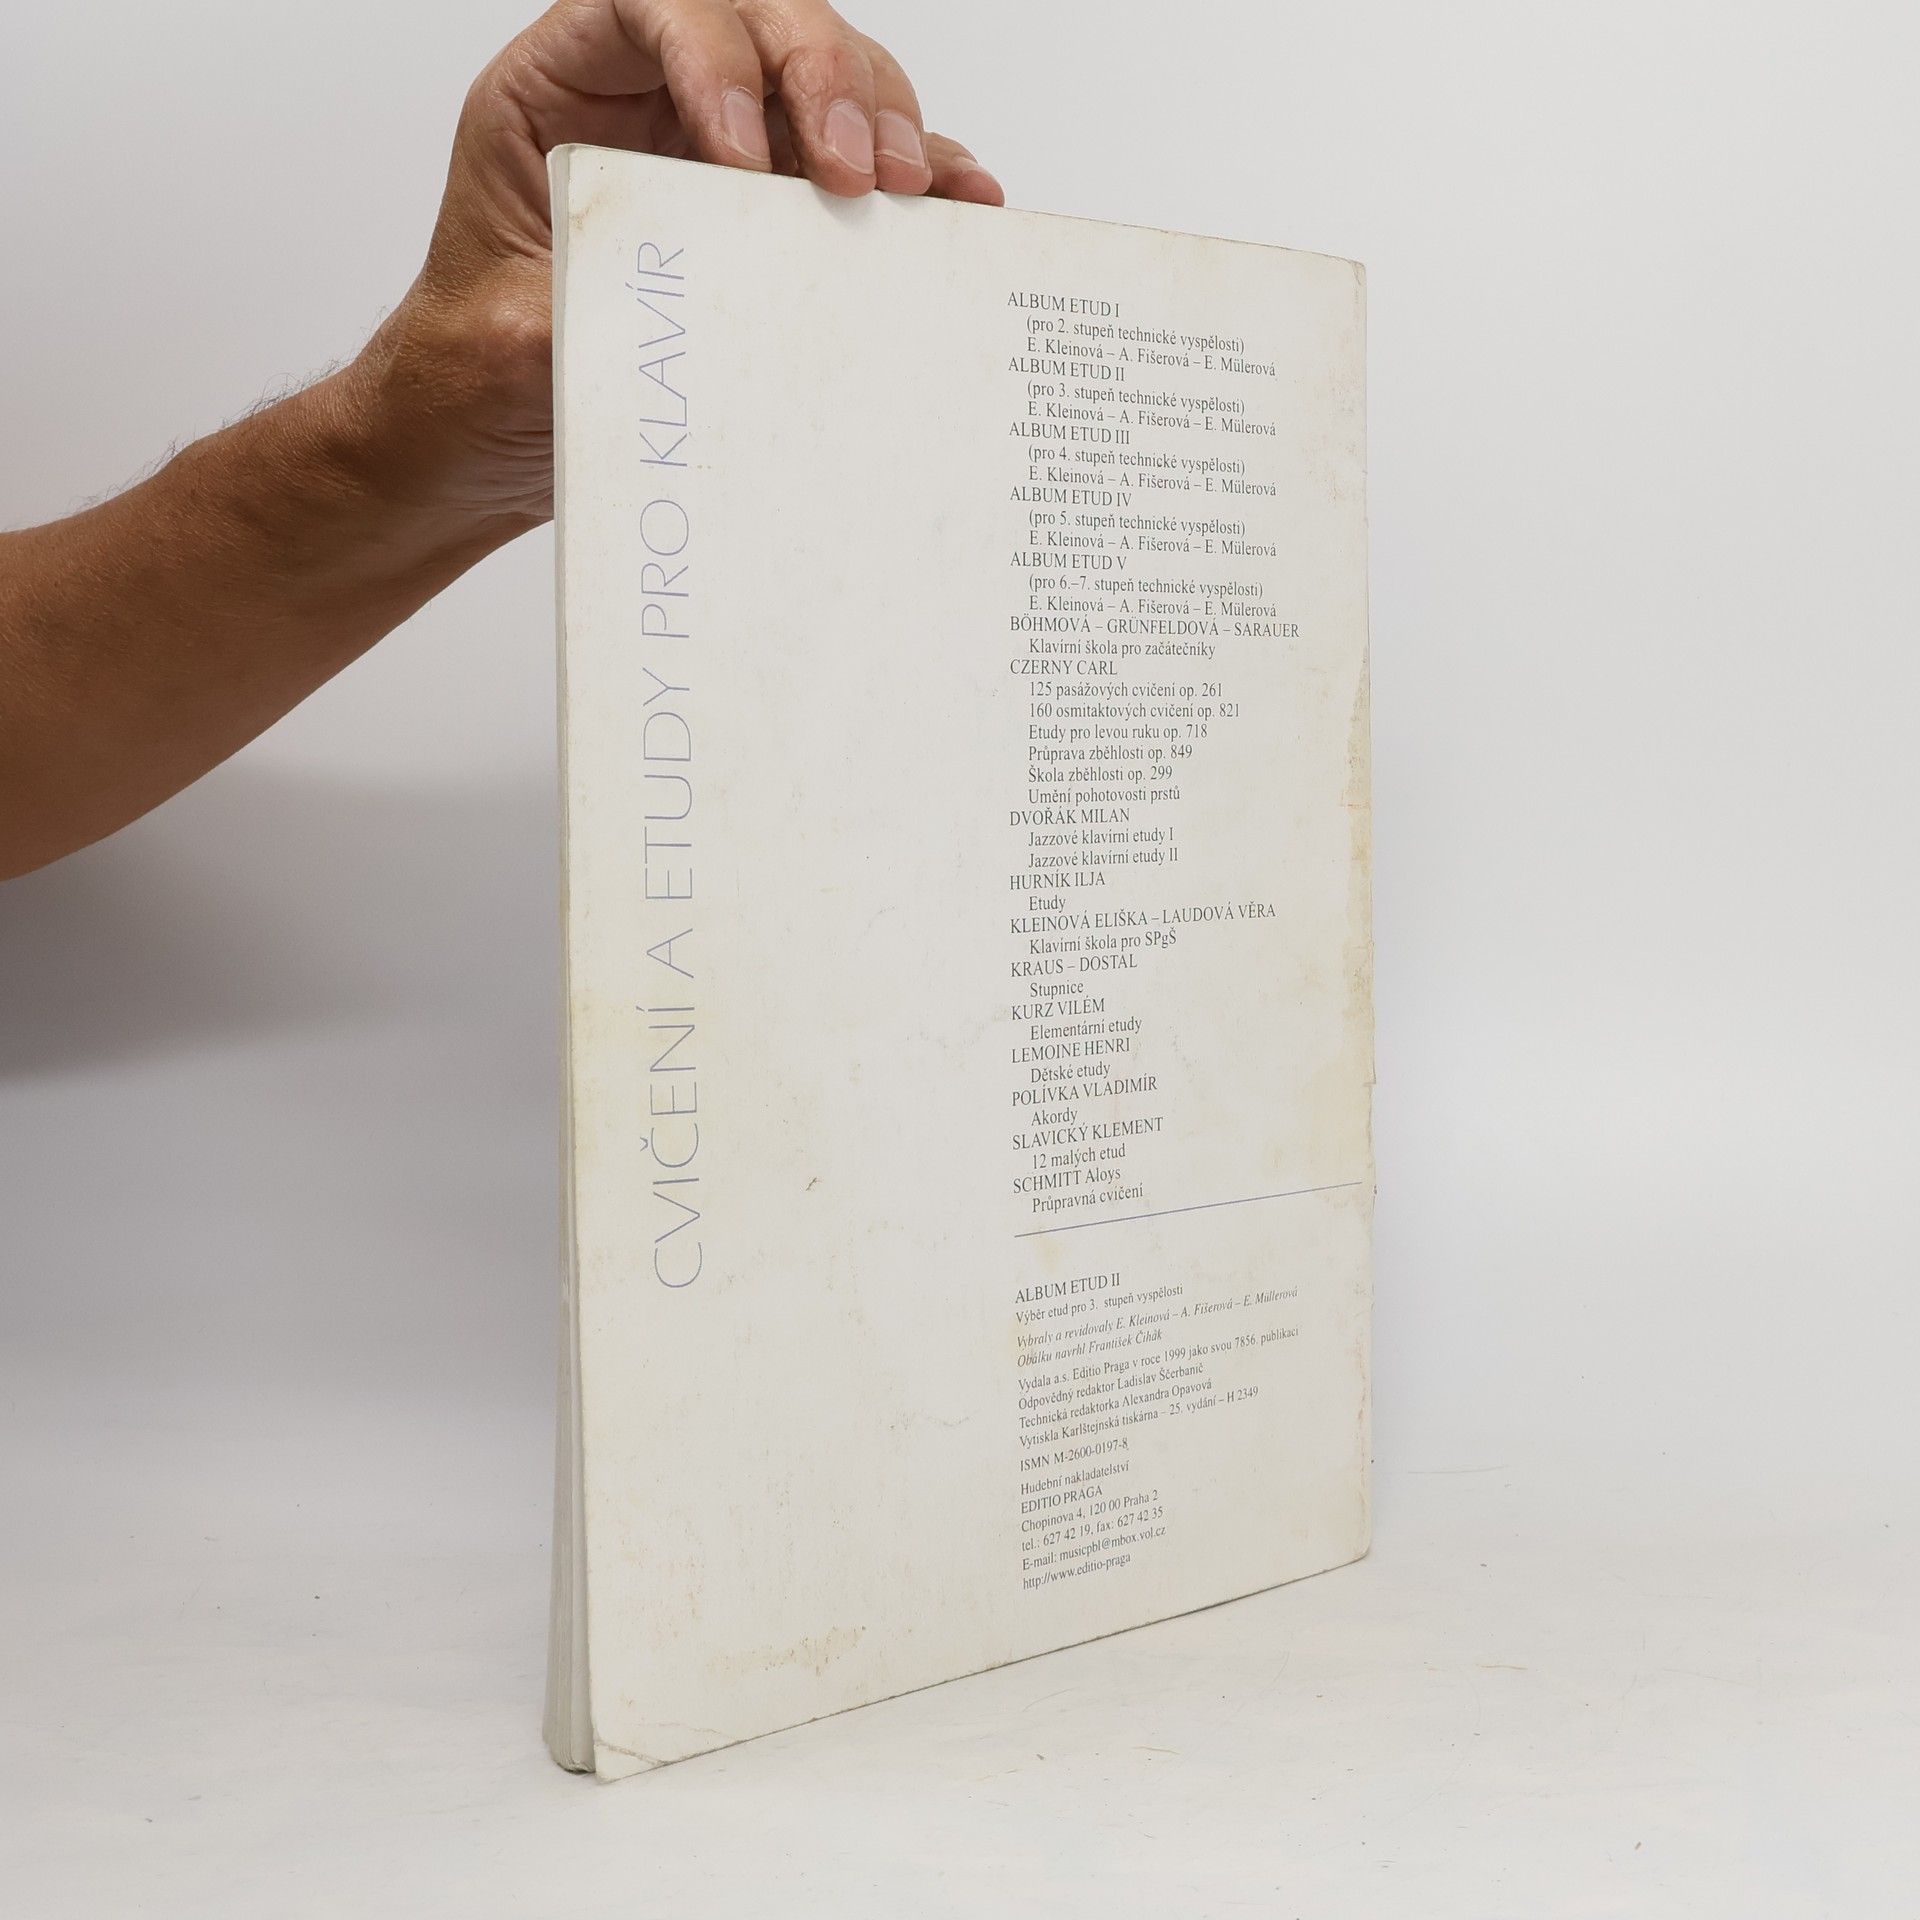 CVIČENÍ A ETUDY PRO KLAVÍR
ALBUM ETUD I
(pro 2. stupeň technické vyspělosti)
E. Kleinová – A. Fišerová – E. Mülerová
ALBUM ETUD II
(pro 3. stupeň technické vyspělosti)
E. Kleinová – A. Fišerová – E. Mülerová
ALBUM ETUD III
(pro 4. stupeň technické vyspělosti)
E. Kleinová – A. Fišerová – E. Mülerová
ALBUM ETUD IV
(pro 5. stupeň technické vyspělosti)
E. Kleinová – A. Fišerová – E. Mülerová
ALBUM ETUD V
(pro 6.–7. stupeň technické vyspělosti)
E. Kleinová – A. Fišerová – E. Mülerová
BÖHMOVÁ – GRÜNFELDOVÁ – SARAUER
Klavírní škola pro začátečníky
CZERNY CARL
125 pasážových cvičení op. 261
160 osmitaktových cvičení op. 821
Etudy pro levou ruku op. 718
Průprava zběhlosti op. 849
Škola zběhlosti op. 299
Umění pohotovosti prstů
DVOŘÁK MILAN
Jazzové klavírní etudy I
Jazzové klavírní etudy II
HURNÍK ILJA
Etudy
KLEINOVÁ ELIŠKA – LAUDOVÁ VĚRA
Klavírní škola pro SPgŠ
KRAUS – DOSTAL
Stupnice
KURZ VILÉM
Elementární etudy
LEMOINE HENRI
Dětské etudy
POLÍVKA VLADIMÍR
Akordy
SLAVICKÝ KLEMENT
12 malých etud
SCHMITT Aloys
Průpravná cvičení
ALBUM ETUD II
Výběr etud pro 3. stupeň vyspělosti
Vybraly a revidovaly E. Kleinová – A. Fišerová – E. Müllerová
Obálku navrhl František Čihák
Vydala a.s. Editio Praga v roce 1999 jako svou 7856. publikaci
Odpovědný redaktor Ladislav Ščerbanič
Technická redaktorka Alexandra Opavová
Vytiskla Karlštejnská tiskárna – 25. vydání – H 2349
ISMN M-2600-0197-8
Hudební nakladatelství
EDITIO PRAGA
Chopinova 4, 120 00 Praha 2
tel.: 627 42 19, fax: 627 42 35
E-mail: musicpbl@mbox.vol.cz
http://www.editio-praga